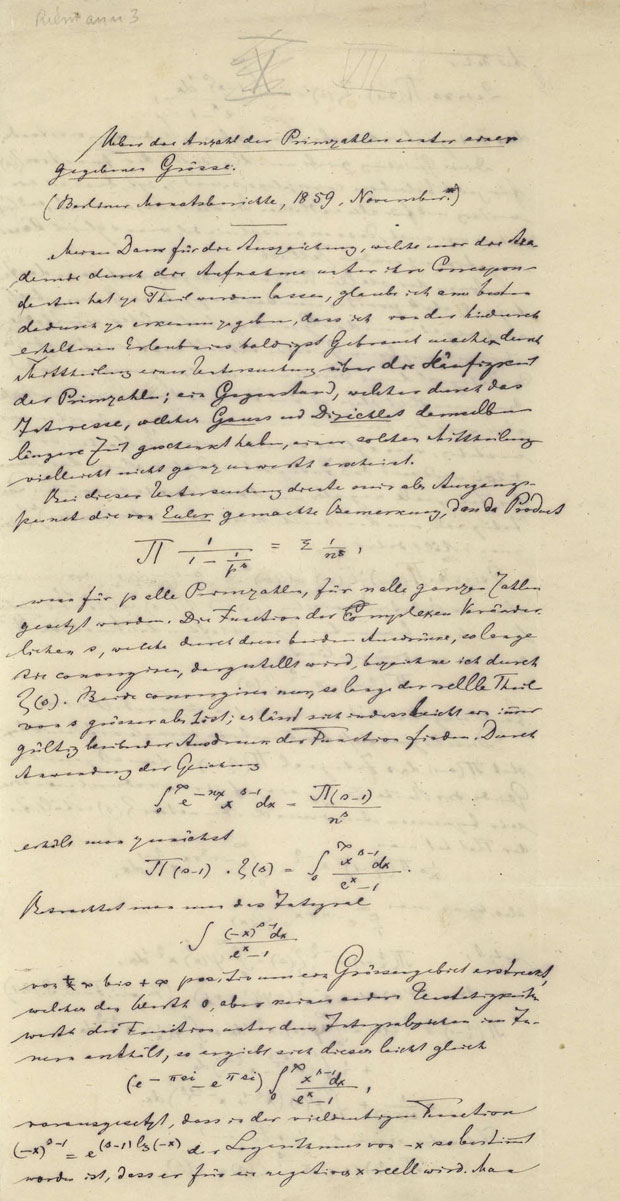 Riemann 3
X VII
Ueber die Anzahl der Primzahlen unter einer
gegebenen Grösse.
(Berliner Monatsberichte, 1859, November.)
Meinen Dank für die Auszeichnung, welche mir die Aka-
demie durch die Aufnahme unter ihre Correspon-
denten hat zu Theil werden lassen, glaube ich am besten
dadurch zu erkennen zu geben, dass ich von der hiedurch
erhaltenen Erlaubniss baldigst Gebrauch mache durch
Mittheilung einer Untersuchung über die Häufigkeit
der Primzahlen; ein Gegenstand, welcher durch das
Interesse, welches Gauss und Dirichlet demselben
längere Zeit geschenkt haben, einer solchen Mittheilung
vielleicht nicht ganz unwerth erscheint.
Bei dieser Untersuchung diente mir als Ausgangs-
punct die von Euler gemachte Bemerkung, dass das Product
∏ 1/(1 − 1/p^s) = Σ 1/n^s,
wenn für p alle Primzahlen, für n alle ganzen Zahlen
gesetzt werden. Die Function der complexen Veränder-
lichen s, welche durch diese beiden Ausdrücke, so lange
sie convergiren, dargestellt wird, bezeichne ich durch
ζ(s). Beide convergiren nur, so lange der reelle Theil
von s grösser als 1 ist; es lässt sich indess leicht ein immer
gültig bleibender Ausdruck der Function finden. Durch
Anwendung der Gleichung
∫₀^∞ e^(−nx) x^(s−1) dx = Π(s−1)/n^s
erhält man zunächst
Π(s−1) . ζ(s) = ∫₀^∞ x^(s−1) dx/(e^x − 1).
Betrachtet man nun das Integral
∫ (−x)^(s−1) dx/(e^x − 1)
von + ∞ bis + ∞ positiv um ein Grössengebiet erstreckt,
welches den Werth 0, aber keinen andern Unstetigkeits-
werth der Function unter dem Integralzeichen im In-
nern enthält, so ergiebt sich dieses leicht gleich
(e^(−πsi) − e^(πsi)) ∫₀^∞ x^(s−1) dx/(e^x − 1),
vorausgesetzt, dass in der vieldeutigen Function
(−x)^(s−1) = e^((s−1) lg(−x)) der Logarithmus von −x so bestimmt
worden ist, dass er für ein negatives x reell wird. Man